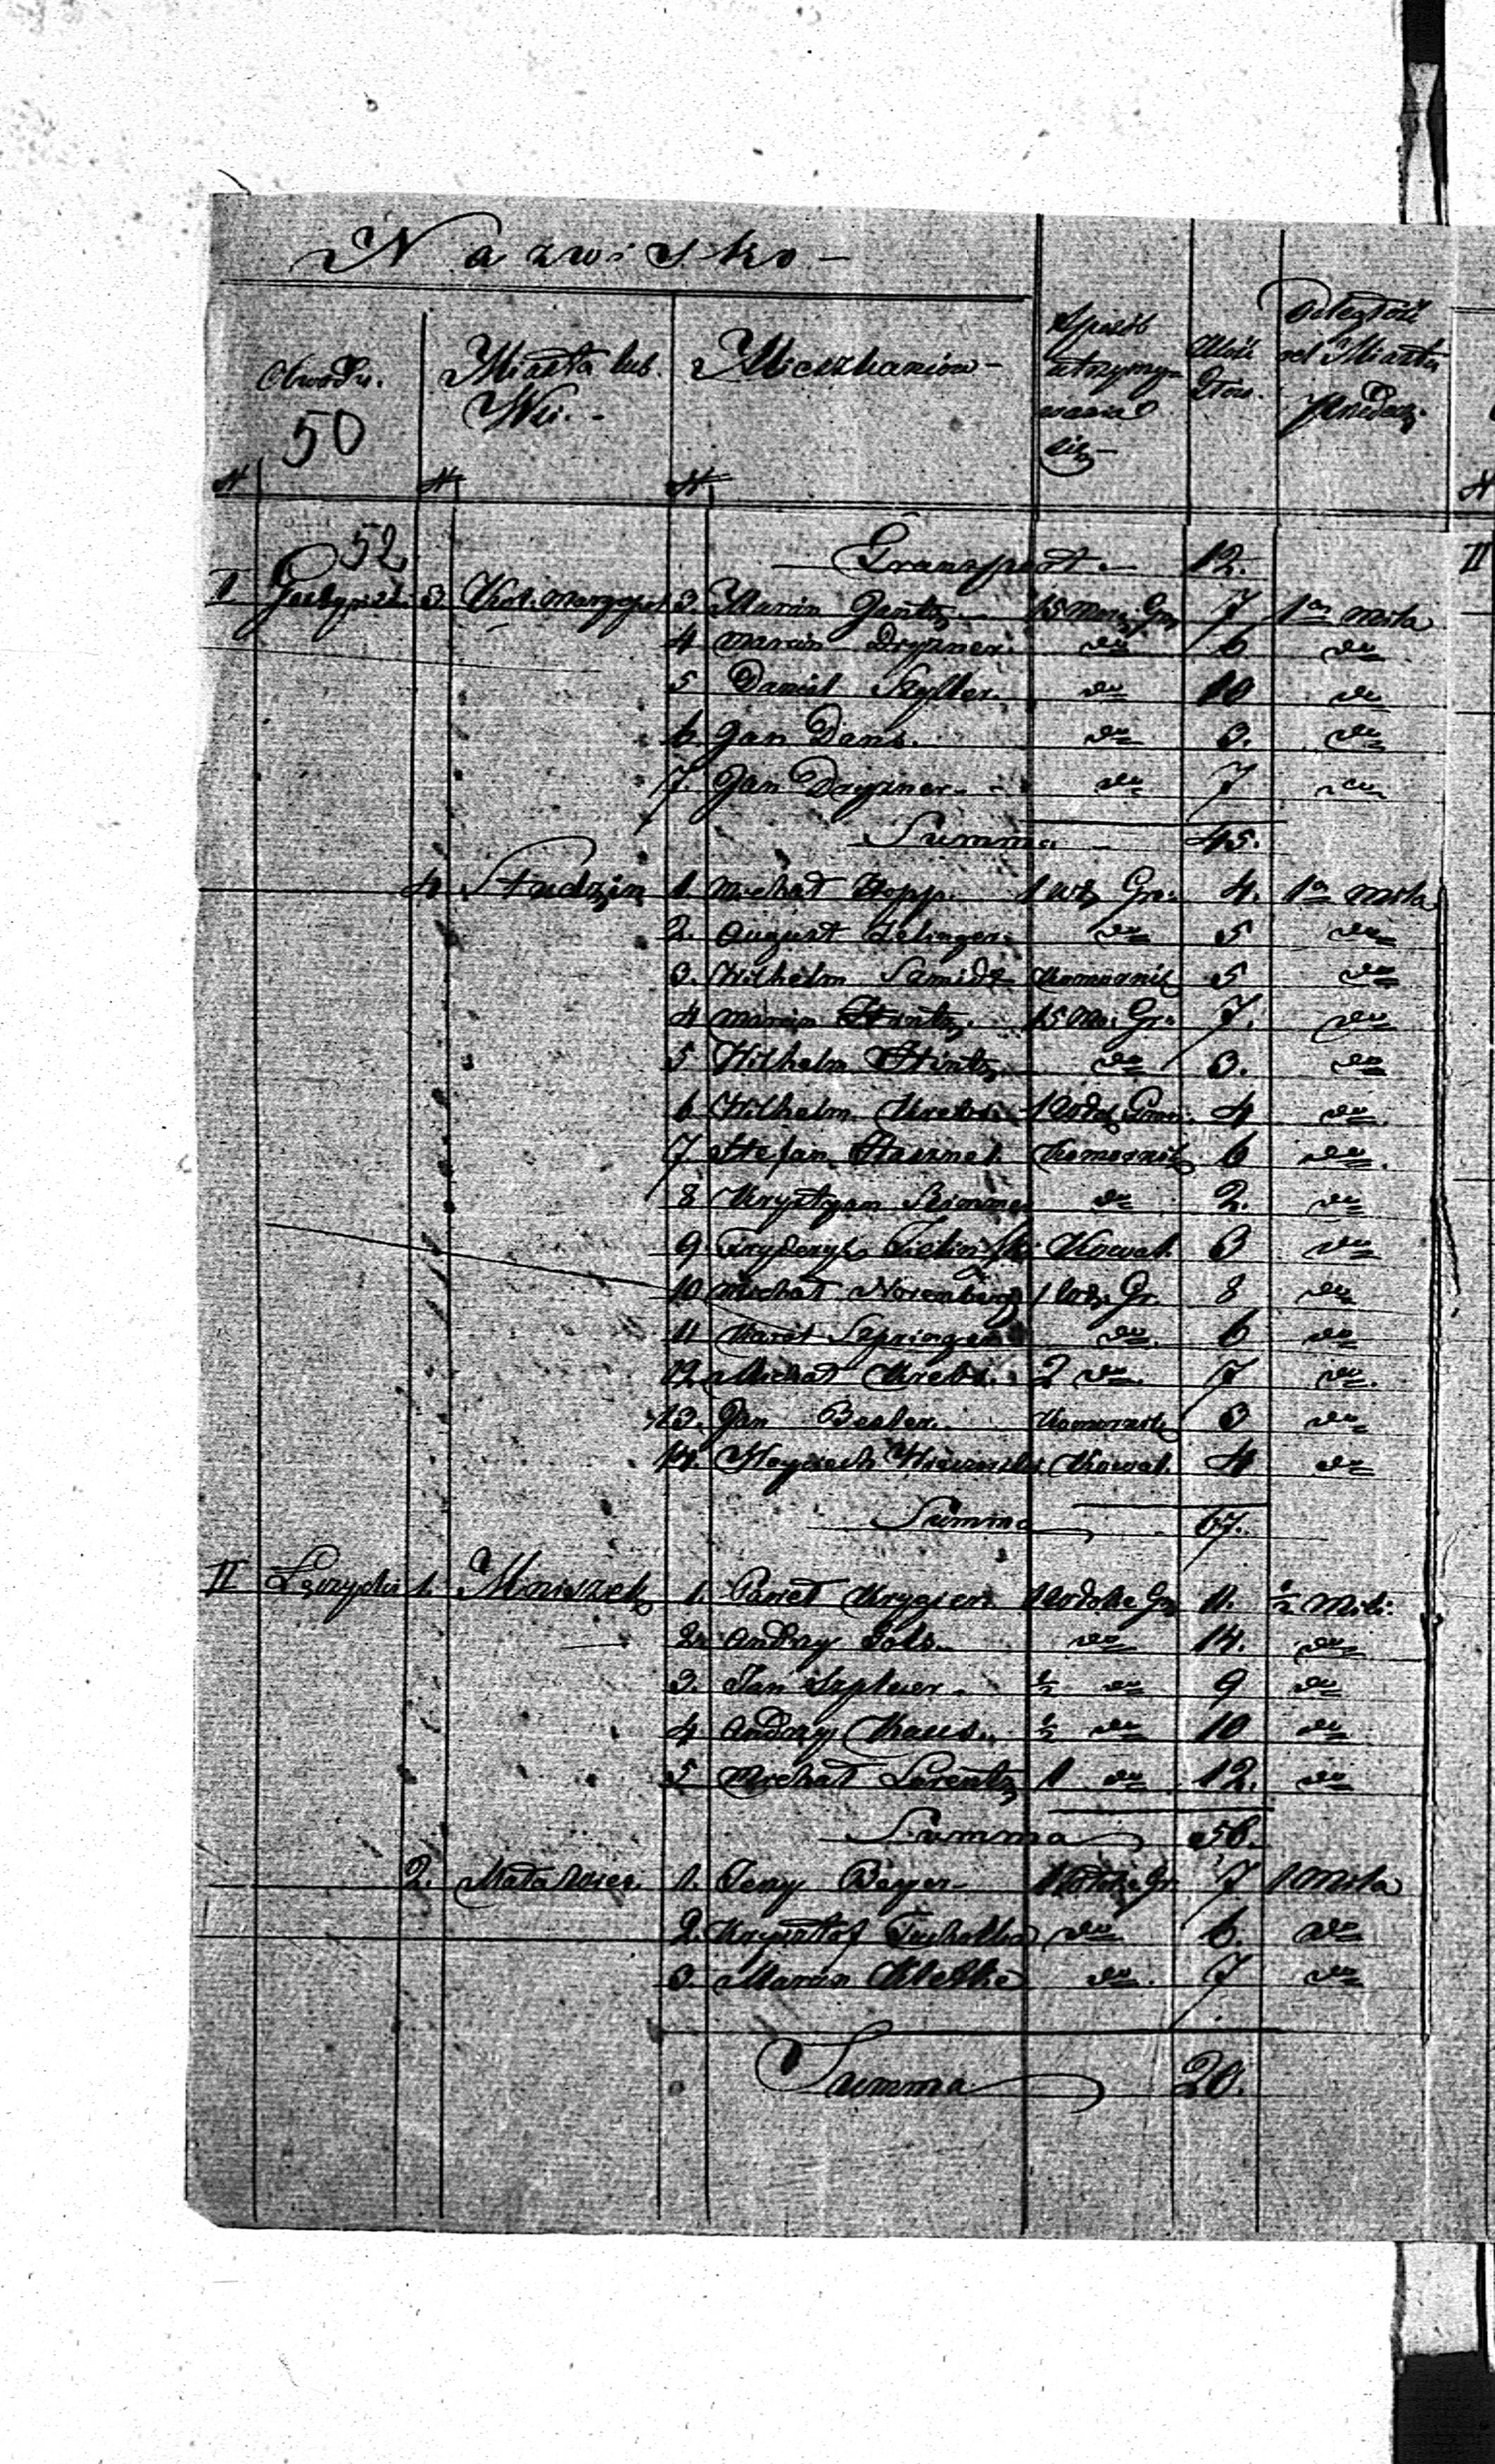 Nazwisko
Obwodu. Miasta lub Wsi. Mieszkańców Sposób utrzymywania się Ilość Głów. Odległość od Miasta
50
N N N
52
Transport 12.
I 3. Kol. 3. Marcin Jantz 15 Mor. Gr. 7 1na mila
4 Marcin Dryzner do 6 do
5 Daniel Szyller do 10 do
6. Jan Dans. do 3. do
7. Jan Dryzner do 7 do
Summa 45.
4 Studzin 1. Michał Hopp. 1 wł. Gr. 4. 1a mila
2. August Zelinger do 5 do
3. Wilhelm Szmidt Komornik 5 do
4 Marcin Hintz. 15 Mo. Gr. 7. do
5 Wilhelm Hintz do 3. do
6 Wilhelm Krebs. 1 Włók. Grun. 4 do
7 Stefan Komornik 6 do
8 Krystyan do 2. do
9 Fryderyk Zieliński Kowal. 3 do
10 Michał Norenberg 1 Włó. Gr. 8 do
11 Karol Szpringer do 6 do
12 Michał Krebs. 2 do 7 do
13. Jan Besler. Komornik 3 do
14. Woyciech Kowal. 4 do
Summa 67.
II 1. Mniszek 1. Paweł Krygier 1 Włóka Gr. 11. ½ Mili.
2. Andrzy do 14. do
3. Jan ½ do 9 do
4. Andrzy ½ do 10 do
5 Michał Lorentz 1 do 12. do
Summa 56.
2. Mała wieś. 1. Jerzy Beyer 1 Włóka Gr. 7 1 Mila
2. Krysztof Tucholka do 6. do
3. Marcin Klethe do 7 do
Summa 20.